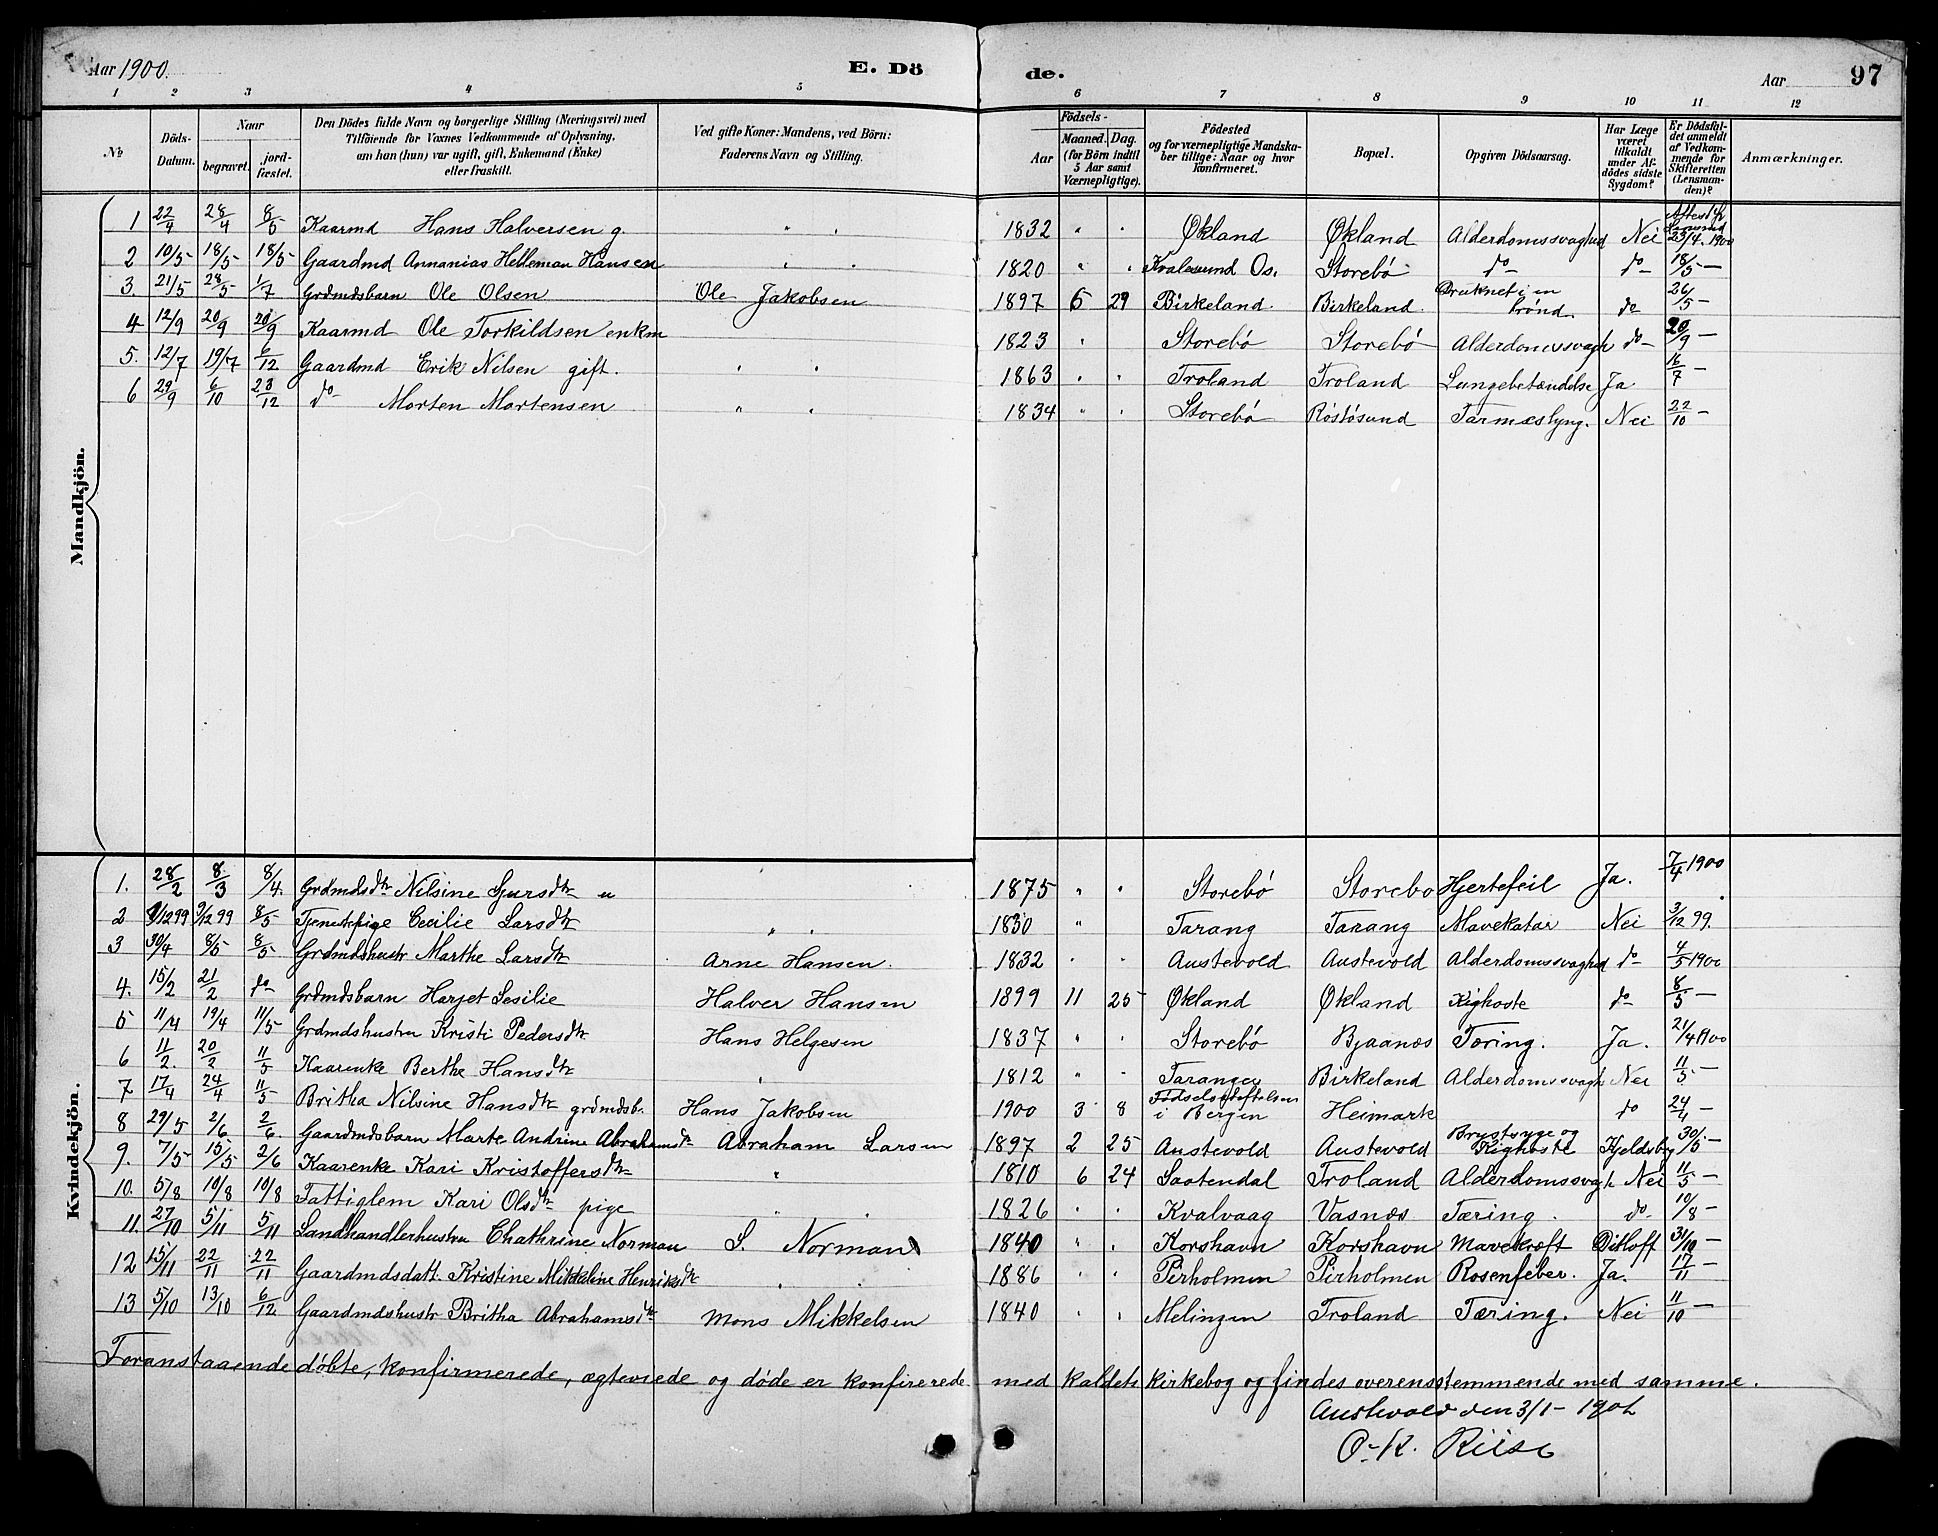 Aar 1900. E. Dö de. Aar 97
1 2 3 4 5 6 7 8 9 10 11 12
No
Döds-Datum.
Naar begravet. jordfæstet.
Den Dödes fulde Navn og borgerlige Stilling (Næringsvei) med Tilföiende for Voxnes Vedkommende af Oplysning, om han (hun) var ugift, gift, Enkemand (Enke) eller fraskilt.
Ved gifte Koner: Mandens, ved Börn: Faderens Navn og Stilling.
Födsels- Aar Maaned. Dag. (for Börn indtil 5 Aar samt Værnepligtige).
Födested og for værnepligtige Mandskaber tillige: Naar og hvor konfirmeret.
Bopæl.
Opgiven Dödsaarsag.
Har Læge været tilkaldt under Afdödes sidste Sygdom?
Er Dödsfaldet anmeldt af Vedkommende for Skifteretten (Lensmanden)?
Anmærkninger.
Mandkjön.
1 22/4 28/4 8/5 Kaarmd Hans Halversen g. " " 1832 " " Økland Økland Alderdomssvaghed Nei 23/4 1900
2 10/5 18/5 18/5 Gaardmd Annanias Helleman Hansen " " 1820 " " Kvalesund Os. Storebø do do 18/5 —
3. 21/5 28/5 1/7 Grdmdsbarn Ole Olsen Ole Jakobsen 1897 5 29 Birkeland Birkeland. Druknet i en brønd. do 26/5 —
4 12/9 20/9 20/9 Kaarmd Ole Torkildsen enkm 1823 " Storebø Storebø Alderdomssvagh do 20/9 —
5. 12/7 19/7 6/12 Gaardmd Erik Nilsen gift. " " 1863 " " Troland Troland Lungebetændelse Ja 16/7 —
6 29/9 6/10 23/12 do Morten Mortensen " " 1834 " " Storebø Røstøsund Tarmeslyng. Nei 22/10 —
Kvindekjön.
1. 28/2 8/3 8/4. Grdmdsdtr Nilsine Sjursdtr u " 1875 " " Storebø Storebo Hjertefeil Ja. 7/4 1900
2 3/12 99 8/5 Tjenestepige Cecilie Larsdtr " " 1830 " Tarang Tarang Mavekatar Nei 3/12 99.
3 30/4 8/5 8/5 Grdmdshustr Marthe Larsdtr Arne Hansen. 1832 " " Austevold Austevold Alderdomssvaghed do 4/5 1900
4. 15/2 21/2 do Grdmdsbarn Harjet Sesilie Halver Hansen 1899 11 25 Økland Økland Kighoste do 8/5 —
5 11/4 19/4 11/5 Grdmdshustru Kristi Pedersdtr Hans Helgesen 1837 " " Storebø Bjaanæs Tæring. Ja. 21/4 1900
6 11/2. 20/2 11/5 Kaarenke Berthe Hansdtr " 1812 " " Taranger Birkeland Alderdomssvagh Nei 11/5 —
7 17/4 24/4 11/5 Britha Nilsine Hansdtr grdmdsb. Hans Jakobsen 1900 3 8 Fødselsstiftelsen i Bergen Heimark do 24/4 —
8 29/5 2/6 2/6. Gaardmdsbarn Marte Andrine Abrahamsdtr Abraham Larsen 1897 2 25 Austevold Austevold Brystsyge og Kighoste Kjeldsberg 30/5 —
9. 7/5 15/5 2/6 Kaarenke Kari Kristoffersdtr " 1810 6 24 Saatendal Troland Alderdomssvagh Nei 11/5 —
10. 5/8 10/8 10/8 Fattiglem Kari Olsdtr pige " " 1826 " " Kvalvaag Vasnæs Tæring. do 10/8 —
11. 27/10 5/11 5/11 Landhandlerhustru Chathrine Norman S. Norman 1840 " " Korshavn Korshavn Mavekræft Ditloff 31/10 —
12 15/11 22/11 22/11 Gaardmdsdatt. Kristine Mikkeline Henriksdtr " " 1886 " " Pirholmen Pirholmen Rosenfeber. Ja. 17/11 —
13 5/10 13/10 6/12 Gaardmdshustr Britha Abrahamsdtr Mons Mikkelsen 1840 " " Melingen Troland Tæring. Nei 11/10 —
Foranstaaende døbte, konfirmerede, ægteviede og døde er konfirerede med kaldets kirkebog og findes overensstemmende med samme.
Austevold den 3/1- 1901
O. K. Riise